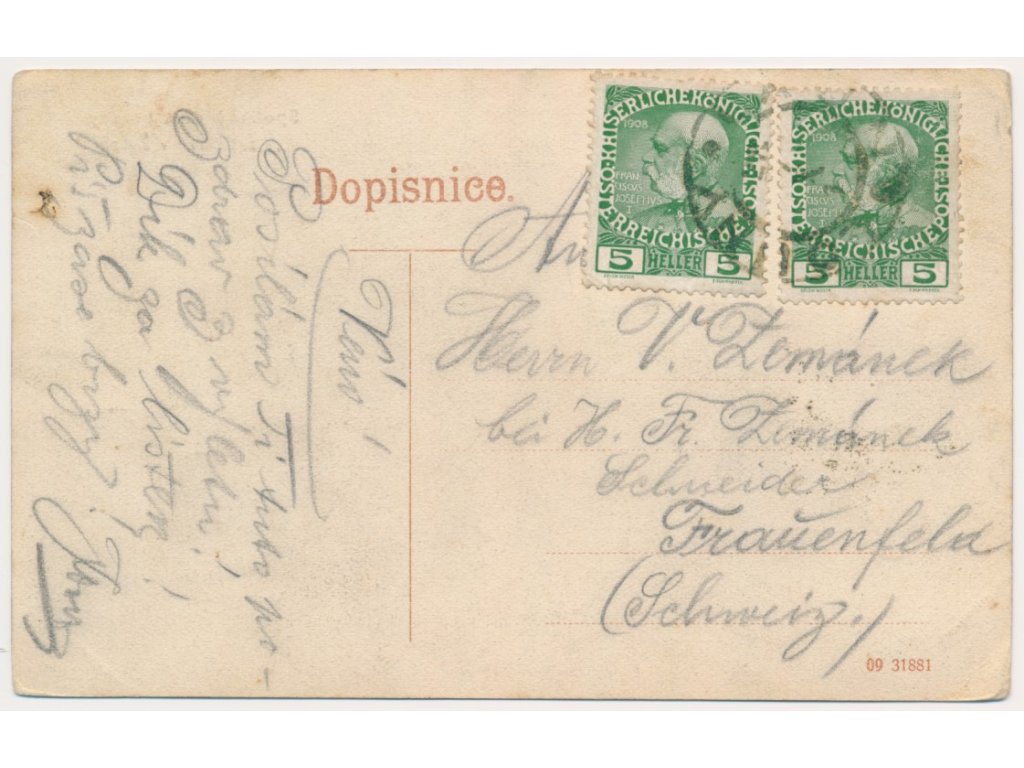 Dopisnice.
KAISERLICHE KÖNIGLICHE
ÖSTERREICHISCHE POST
1908
FRAN
CISCVS
JOSEPHVS
I
5 HELLER 5
KAISERLICHE KÖNIGLICHE
ÖSTERREICHISCHE POST
1908
FRAN
CISCVS
JOSEPHVS
I
5 HELLER 5
An
Herrn V. Zemánek
bei H. Fr. Zemánek
Schneider
Frauenfeld
(Schweiz.)
Posílám Ti tuto po-
Dík za lístek!
09 31881